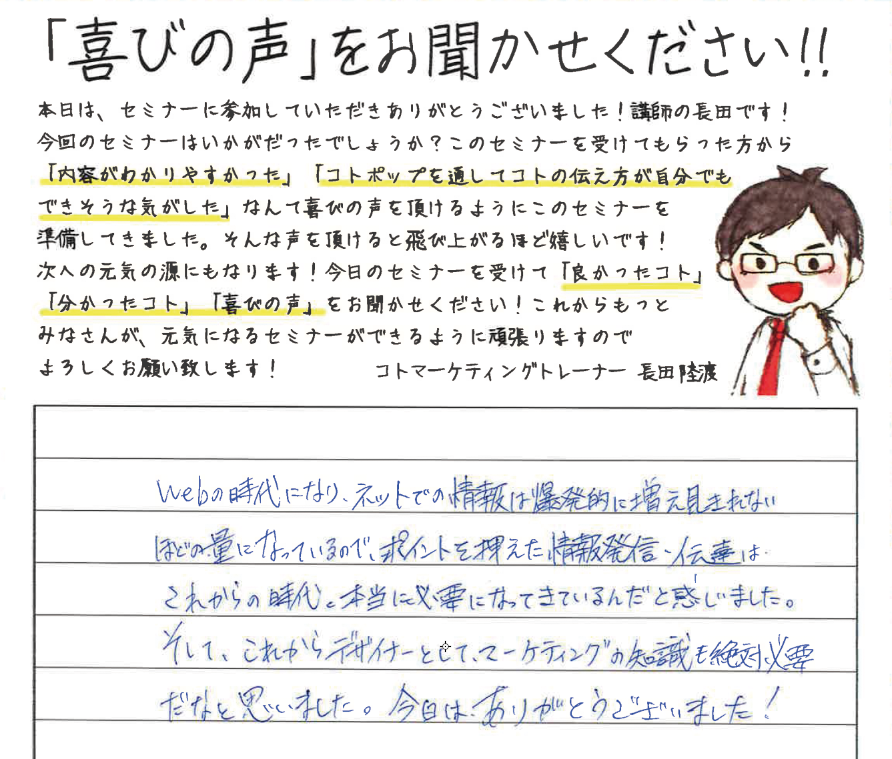 「喜びの声」をお聞かせください!!
本日は、セミナーに参加していただきありがとうございました！講師の長田です！
今回のセミナーはいかがだったでしょうか？このセミナーを受けてもらった方から
「内容がわかりやすかった」「コトポップを通してコトの伝え方が自分でも
できそうな気がした」なんて喜びの声を頂けるようにこのセミナーを
準備してきました。そんな声を頂けると飛び上がるほど嬉しいです！
次への元気の源にもなります！今日のセミナーを受けて「良かったコト」
「分かったコト」「喜びの声」をお聞かせください！これからもっと
みなさんが、元気になるセミナーができるように頑張りますので
よろしくお願い致します！
コトマーケティングトレーナー 長田陸渡
Webの時代になり、ネットでの情報は爆発的に増え見きれない
ほどの量になっているので、ポイントを押えた情報発信・伝達は
これからの時代、本当に必要になってきているんだと感じました。
そして、これからデザイナーとして、マーケティングの知識も絶対必要
だなと思いました。今日は、ありがとうございました！